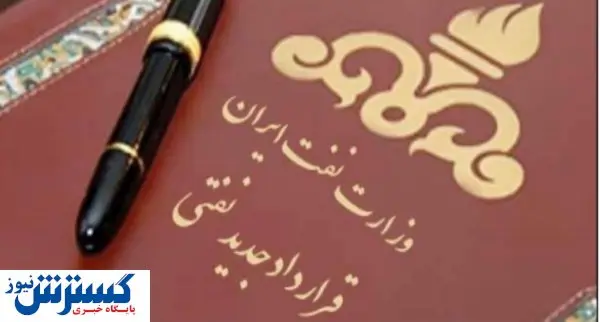 وزارت نفت ایران
قرارداد جدید نفتی
گسترش نیوز
پایگاه خبری